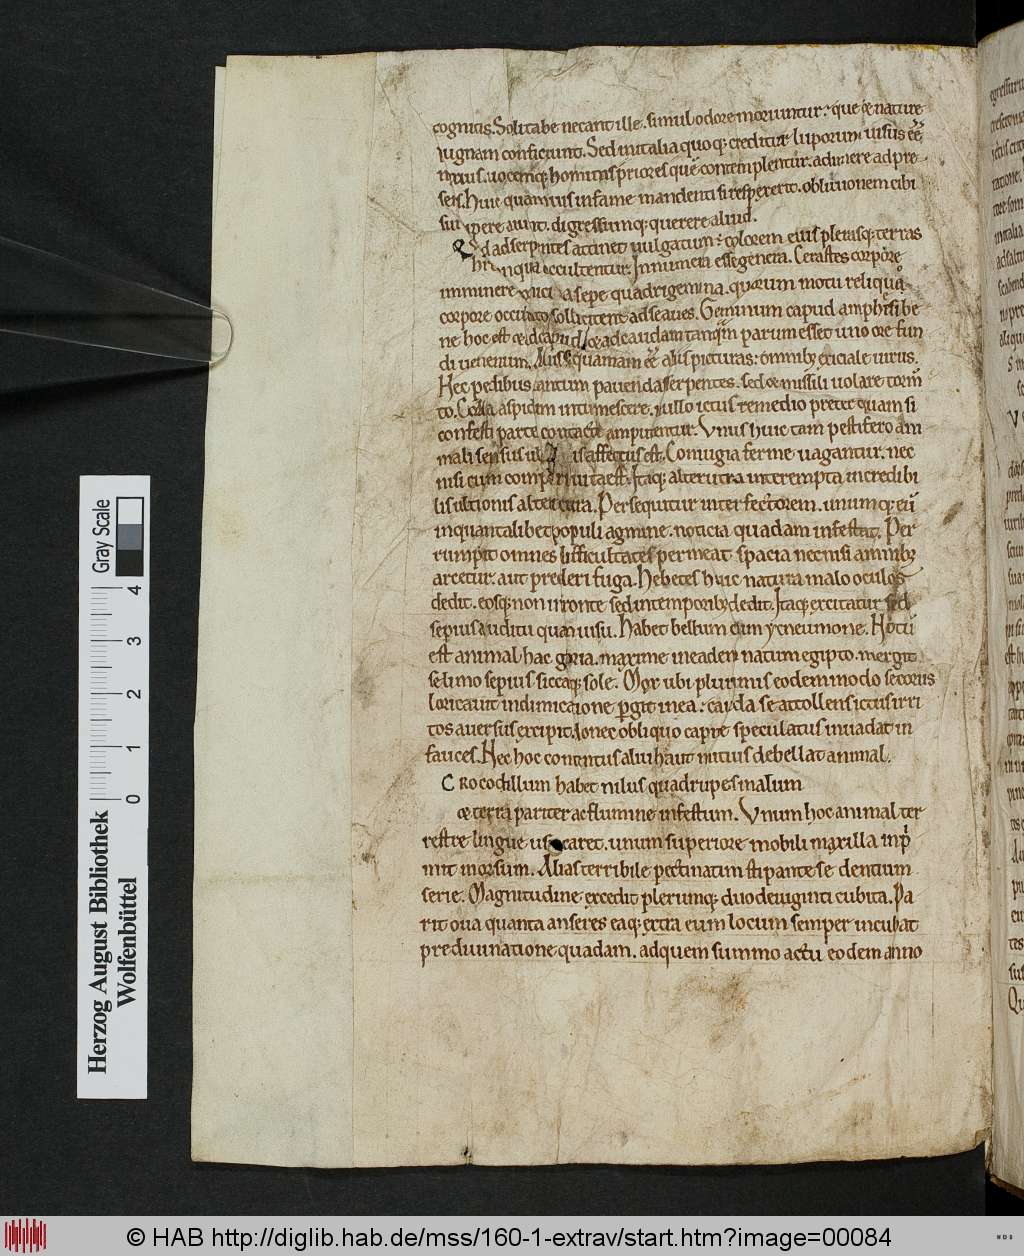 cognitis. Soli tabe necant ille. simul odore moriuntur. que & nature
pugnam conficiunt. Sed in italia quoq; creditur luporum uisus eē
noxius. uocemq; hominis priores quē contemplentur. adimere ad pre
sens. Huic quamuis in fame mandenti si respexerit. obliuionem cibi
surripere aiunt. digressumq; querere aliud.
Quod ad serpentes attinet uulgatum ē colorem eius plerasq; terras
occultentur. Innumera esse genera. Cerastes corpore
imminere sepe quadrigemina. quorum motu reliquā
corpore occultato sollicitent ad se aues. Geminum capud amphisibe
ne hoc est & ad capud & ad caudam tanquā parum esset uno ore fun
di uenenum. Aliis squamam eē aliis picturas. omnib; exiciale uirus.
Hec pedibus tantum pauenda serpentes. sed & missili uolare torm̄
to. Colla aspidum intumescere. nullo ictus remedio preter quam si
confesti parte contacte amputentur. Unus huic tam pestifero ani
mali sensus uel affectus est. Coniugia ferme uagantur. nec
nisi cum compari uita est. Itaq; alterutra interempta incredibi
lis ultionis altera cura. Persequitur interfectorem. unumq; eū
in quantalibet populi agmine. noticia quadam infestat. Per
rumpit omnes difficultates permeat spacia nec nisi amnib;
arcetur. aut prederi fuga. Hebetes huic natura malo oculos
dedit. eosq; non in fronte sed in temporib; dedit. Itaq; excitatur sed
sepius auditu quam uisu. Habet bellum cum ycneumone. Notū
est animal hac gloria. maxime in eadem natum egipto. mergit
se limo sepius siccatq; sole. Mox ubi plurimis eodem modo se coriis
loricauit in dimicacione pergit in ea. cauda se attollens ictus irri
tos auersus excipit. donec obliquo capite speculatus inuadat in
fauces. Nec hoc contentus aliud haut mitius debellat animal.
Crocodillum habet nilus quadrupes malum
& terra pariter ac flumine infestum. Unum hoc animal ter
restre lingue usu caret. unum superiore mobili maxilla inp̄
mit morsum. Alias terribile pectinatim stipante se dentium
serie. Magnitudine excedit plerunq; duodeuiginti cubita. Pa
rit oua quanta anseres eaq; extra eum locum semper incubat
prediuinatione quadam. ad quem summo actu eodem anno
Herzog August Bibliothek
Wolfenbüttel
0 1 2 3 4
Gray Scale
© HAB http://diglib.hab.de/mss/160-1-extrav/start.htm?image=00084